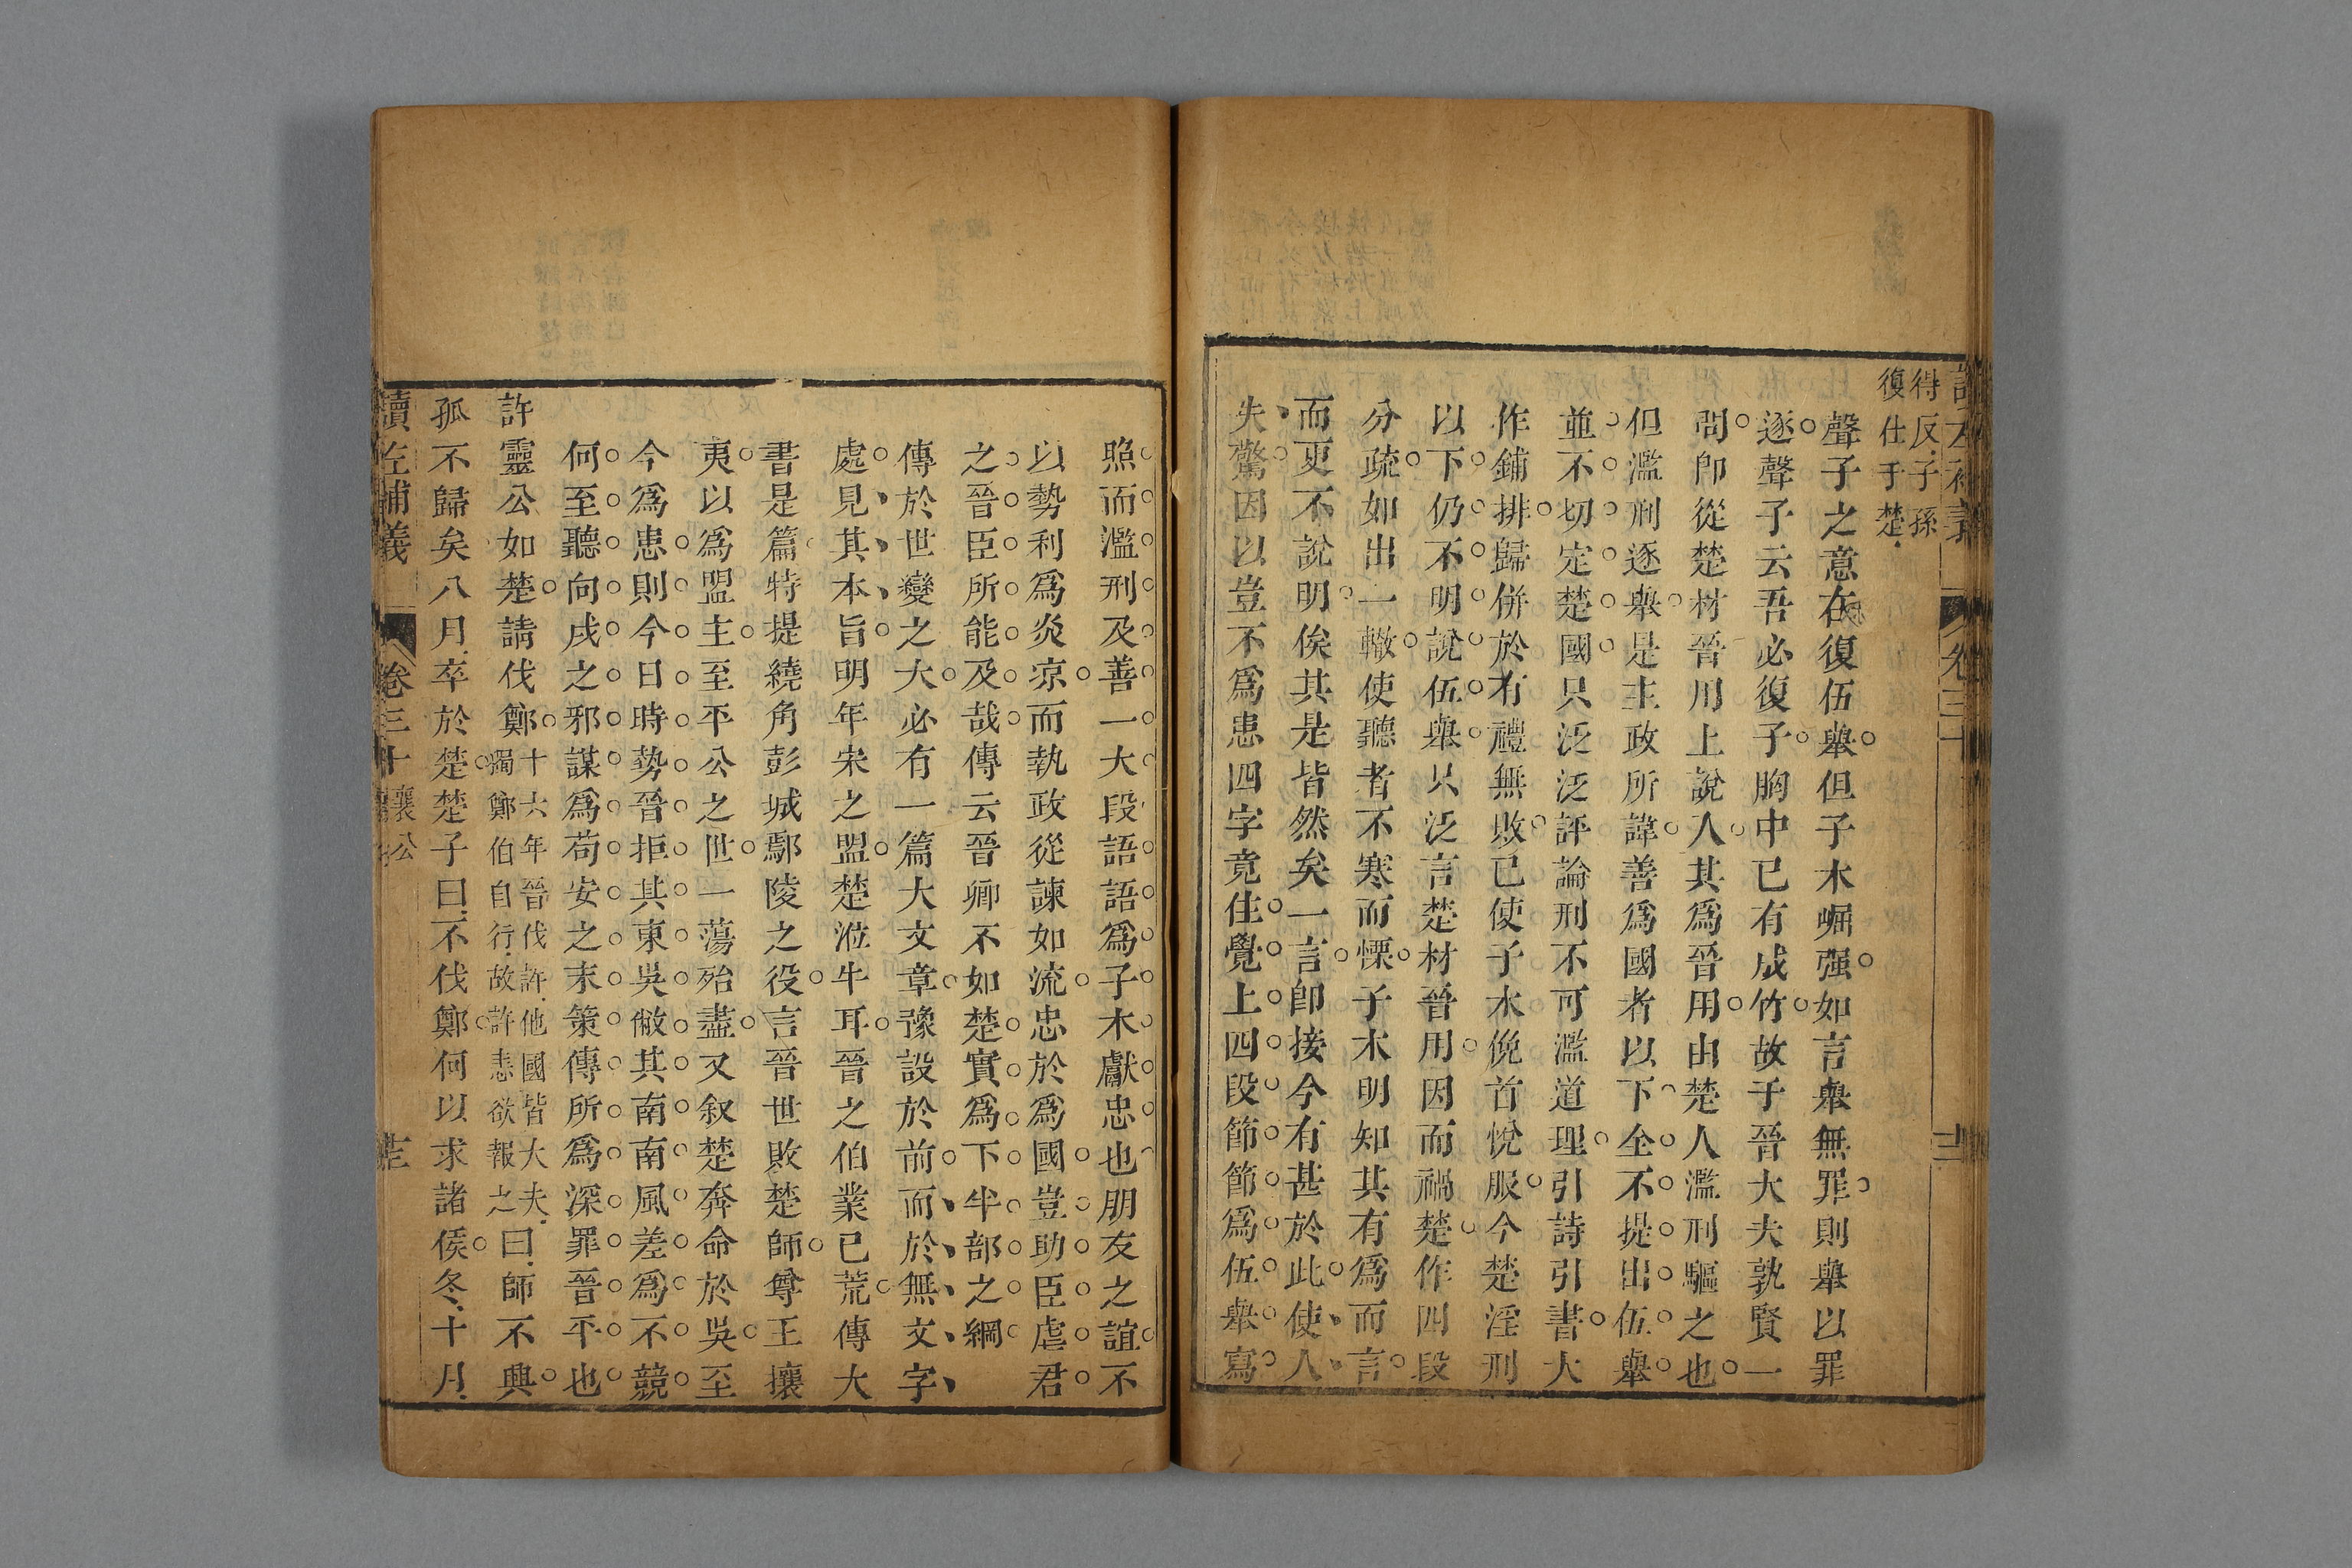 得反子孫
復仕于楚
聲子之意在復伍舉但子木崛强如言舉無罪則舉以罪
逐聲子云吾必復子胸中已有成竹故于晉大夫孰賢一
問卽從楚材晉用上說入其爲晉用由楚人濫刑驅之也
但濫刑逐舉是主政所諱善爲國者以下全不提出伍舉
並不切定楚國只泛泛評論刑不可濫道理引詩引書大
作鋪排歸併於有禮無敗已使子木俛首悅服今楚淫刑
以下仍不明說伍舉只泛言楚材晉用因而禍楚作四段
分疏如出一轍使聽者不寒而慄子木明知其有爲而言
而更不說明俟其是皆然矣一言卽接今有甚於此使人
失驚因以豈不爲患四字竟住覺上四段節節爲伍舉寫
照而濫刑及善一大段語語爲子木獻忠也朋友之誼不
以勢利爲炎凉而執政從諫如流忠於爲國豈助臣虐君
之晉臣所能及哉傳云晉卿不如楚實爲下半部之綱
傳於世變之大必有一篇大文章豫設於前而於無文字
處見其本旨明年宋之盟楚涖牛耳晉之伯業已荒傳大
書是篇特提繞角彭城鄢陵之役言晉世敗楚師尊王攘
夷以爲盟主至平公之世一蕩殆盡又叙楚奔命於吳至
今爲患則今日時勢晉拒其東吳儆其南南風差爲不競
何至聽向戌之邪謀爲苟安之末策傳所爲深罪晉平也
許靈公如楚請伐鄭
十六年晉伐許他國皆大夫
獨鄭伯自行故許恚欲報之
曰師不興
孤不歸矣八月卒於楚楚子曰不伐鄭何以求諸侯冬十月
讀左補義
卷三十
襄公